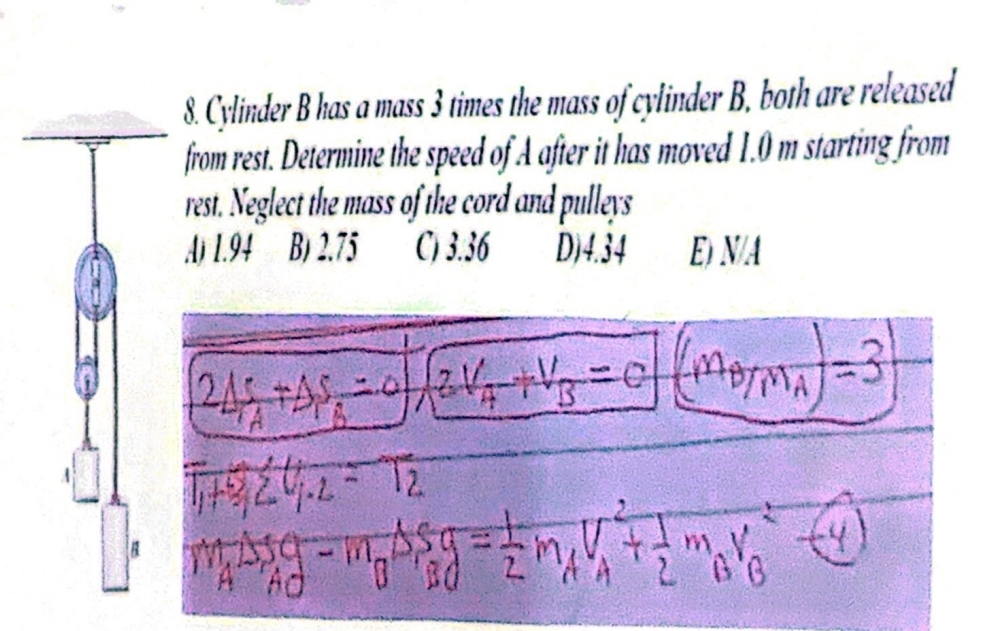 8. Cylinder B has a mass 3 times the mass of cylinder B, both are released
from rest. Determine the speed of A after it has moved 1.0 m starting from
rest. Neglect the mass of the cord and pulleys
A) 1.94 B) 2.75 C) 3.36 D)4.34 E) N/A
2ΔS_A + ΔS_B = 0 2V_A + V_B = 0 (m_B/m_A) = 3
T₁ + ΣU₁₋₂ = T₂
m_A ΔS_A g - m_B ΔS_B g = 1/2 m_A V_A² + 1/2 m_B V_B² (4)
A
B